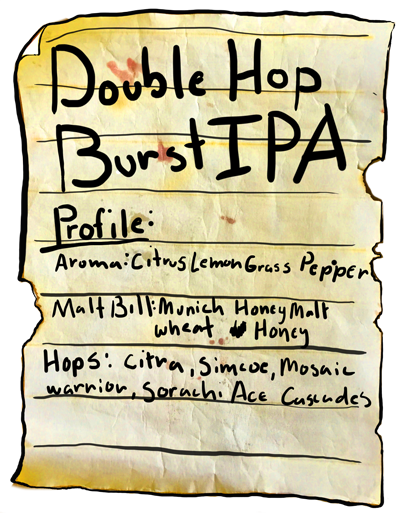 Double Hop
Burst IPA
Profile:
Aroma: Citrus Lemon Grass Pepper
Malt Bill: Munich Honey Malt
wheat Honey
Hops: Citra, Simcoe, Mosaic
warrior, Sorachi Ace Cascades